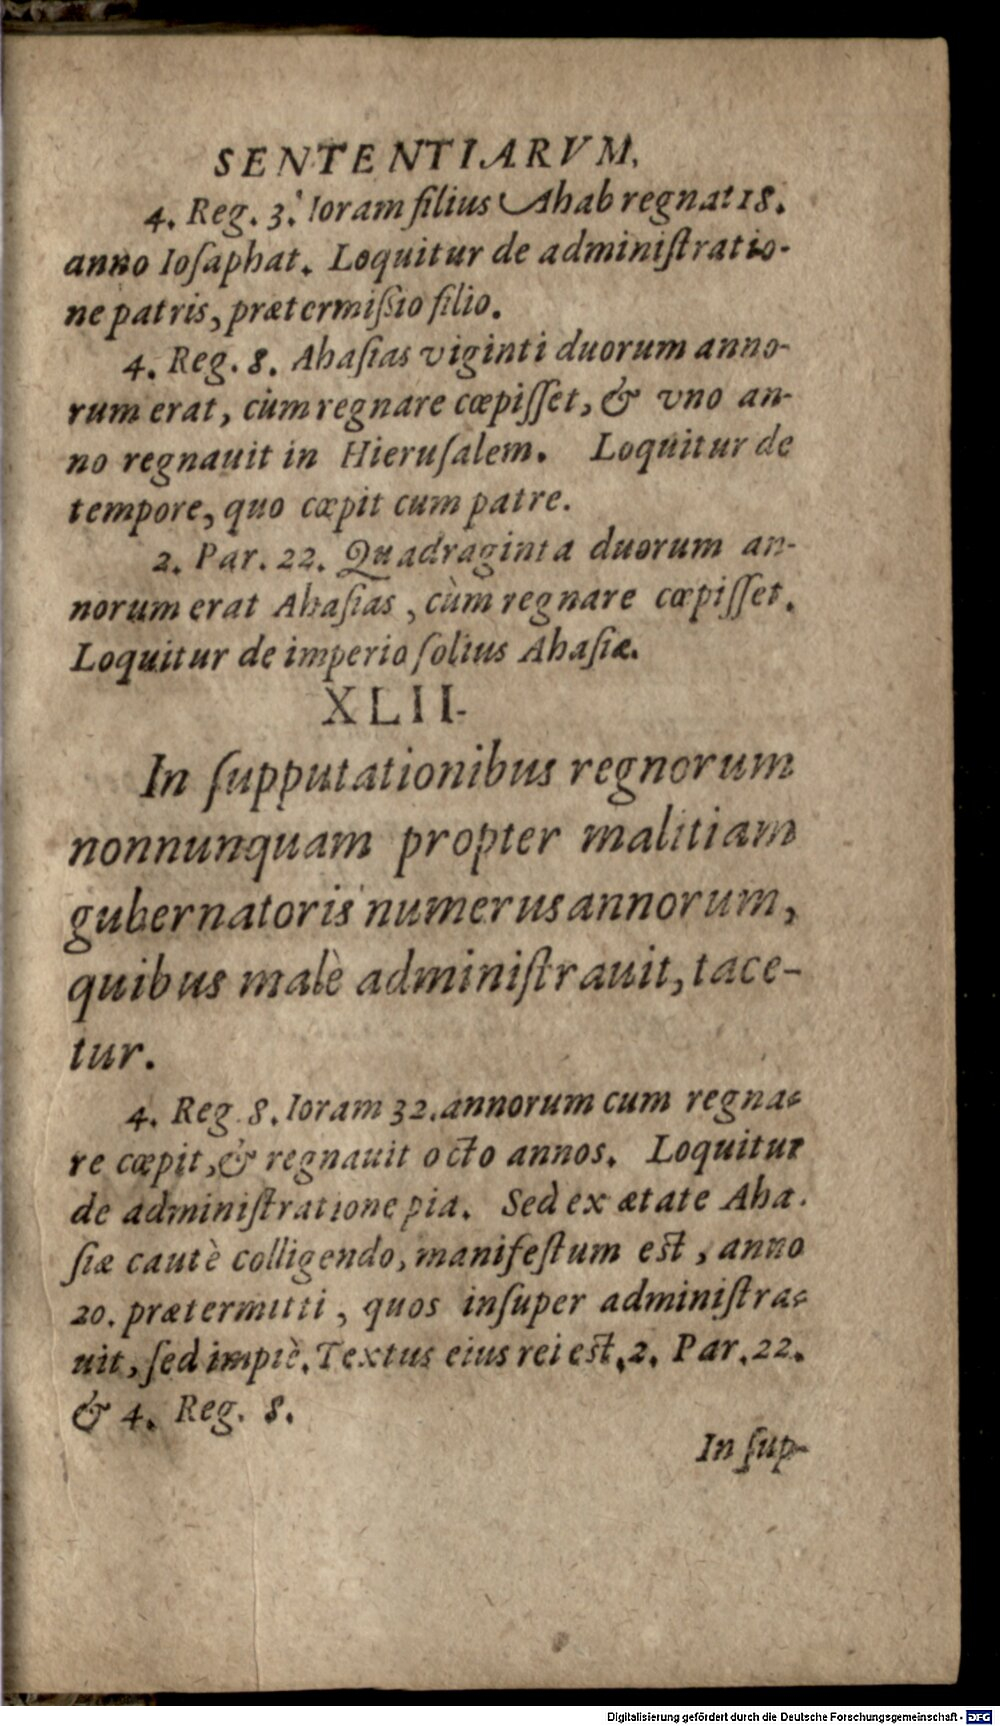 SENTENTIARVM.
4. Reg. 3. Ioram filius Ahab regnat 18.
anno Ioſaphat. Loquitur de adminiſtratio-
ne patris, prætermiſſo filio.
4. Reg. 8. Ahaſias viginti duorum anno-
rum erat, cùm regnare cœpiſſet, & vno an-
no regnauit in Hieruſalem. Loquitur de
tempore, quo cœpit cum patre.
2. Par. 22. Quadraginta duorum an-
norum erat Ahaſias, cùm regnare cœpiſſet.
Loquitur de imperio ſolius Ahaſiæ.
XLII.
In ſupputationibus regnorum
nonnunquam propter malitiam
gubernatoris numerus annorum,
quibus malè adminiſtrauit, tace-
tur.
4. Reg. 8. Ioram 32. annorum cum regna-
re cœpit, & regnauit octo annos. Loquitur
de adminiſtratione pia. Sed ex ætate Aha-
ſiæ cautè colligendo, manifeſtum eſt, anno
20. prætermitti, quos inſuper adminiſtra-
uit, ſed impiè. Textus eius rei eſt. 2. Par. 22.
& 4. Reg. 8.
In ſup-
Digitalisierung gefördert durch die Deutsche Forschungsgemeinschaft - DFG